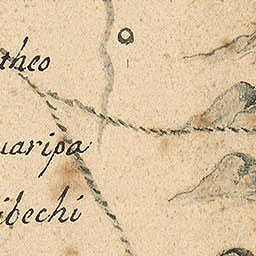 theo
uaripa
ibechi